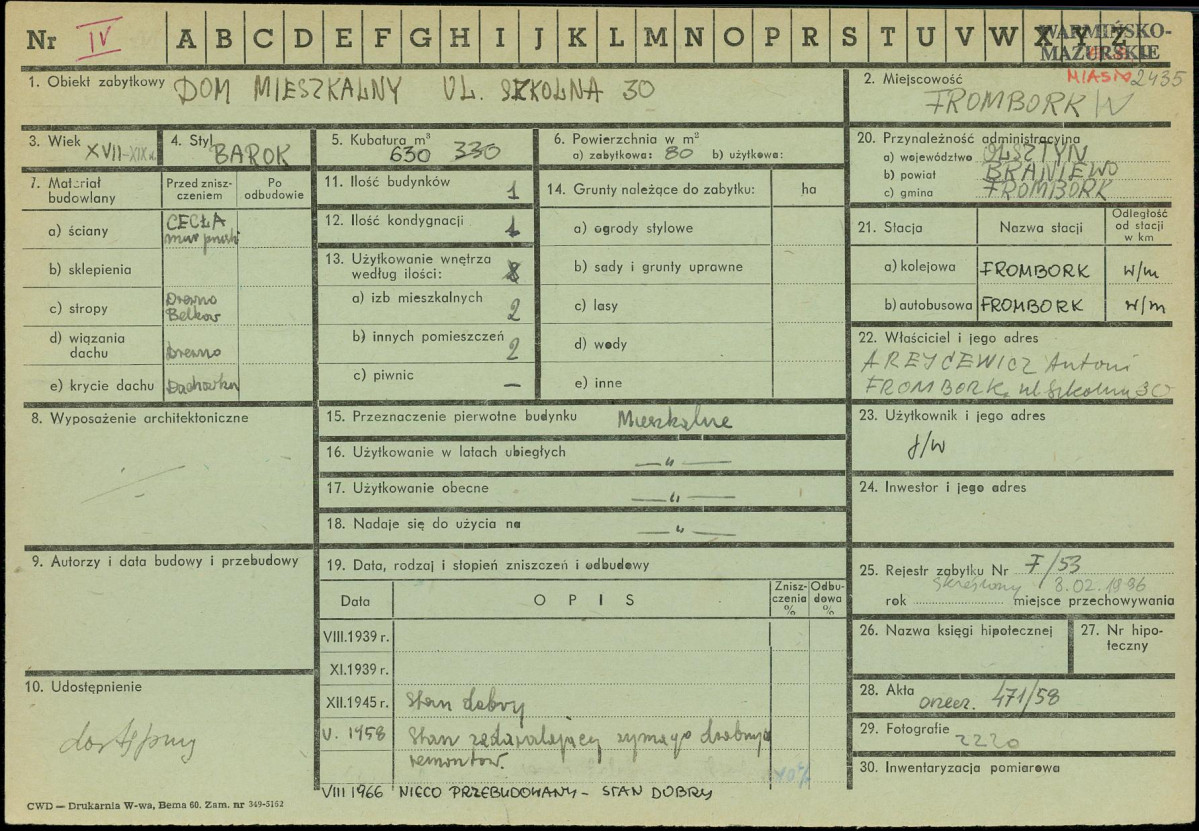 Nr IV A B C D E F G H I J K L M N O P R S T U V W X Y Z
WARMIŃSKO-
MAZURSKIE
MIASTO 2435
1. Obiekt zabytkowy DOM MIESZKALNY UL. SZKOLNA 30
2. Miejscowość
FROMBORK
3. Wiek XVII-XIX w.
4. Styl BAROK
5. Kubatura m³
630 330
6. Powierzchnia w m²
a) zabytkowa: 80 b) użytkowa:
20. Przynależność administracyjna
a) województwo OLSZTYN
b) powiat BRANIEWO
c) gmina FROMBORK
7. Materiał budowlany
Przed zniszczeniem
Po odbudowie
a) ściany CEGŁA
mur pruski
b) sklepienia
c) stropy Drewno
Belkow
d) wiązania dachu Drewno
e) krycie dachu Dachówka
11. Ilość budynków 1
12. Ilość kondygnacji 1
13. Użytkowanie wnętrza
według ilości:
a) izb mieszkalnych 2
b) innych pomieszczeń 2
c) piwnic —
14. Grunty należące do zabytku: ha
a) ogrody stylowe
b) sady i grunty uprawne
c) lasy
d) wody
e) inne
21. Stacja
Nazwa stacji
Odległość
od stacji
w km
a) kolejowa FROMBORK w/m
b) autobusowa FROMBORK w/m
22. Właściciel i jego adres
Antoni
FROMBORK ul Szkolna 30
8. Wyposażenie architektoniczne
—
15. Przeznaczenie pierwotne budynku Mieszkalne
16. Użytkowanie w latach ubiegłych — " —
17. Użytkowanie obecne — " —
18. Nadaje się do użycia na — " —
23. Użytkownik i jego adres
j/w
24. Inwestor i jego adres
9. Autorzy i data budowy i przebudowy
19. Data, rodzaj i stopień zniszczeń i odbudowy
Data
OPIS
Zniszczenia
%
Odbudowa
%
VIII.1939 r.
XI.1939 r.
XII.1945 r. Stan dobry
V. 1958 Stan zadawalający wymaga drobnych
remontów.
40%
VIII 1966 NIECO PRZEBUDOWANY - STAN DOBRY
25. Rejestr zabytku Nr F/53
skreślony 8.02.1996
rok miejsce przechowywania
26. Nazwa księgi hipotecznej
27. Nr hipoteczny
10. Udostępnienie
dostępny
28. Akta orzecz. 471/58
29. Fotografie
2220
30. Inwentaryzacja pomiarowa
CWD — Drukarnia W-wa, Bema 60. Zam. nr 349-5162